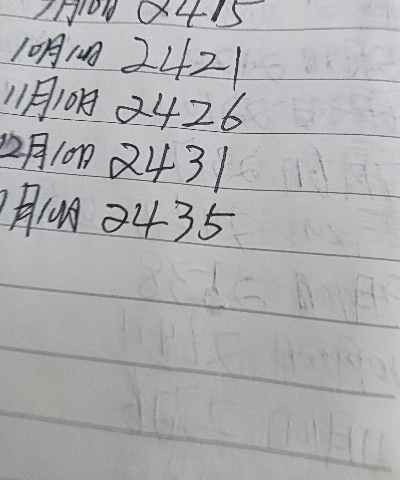 月10日 2415
10月10日 2421
11月10日 2426
12月10日 2431
1月10日 2435